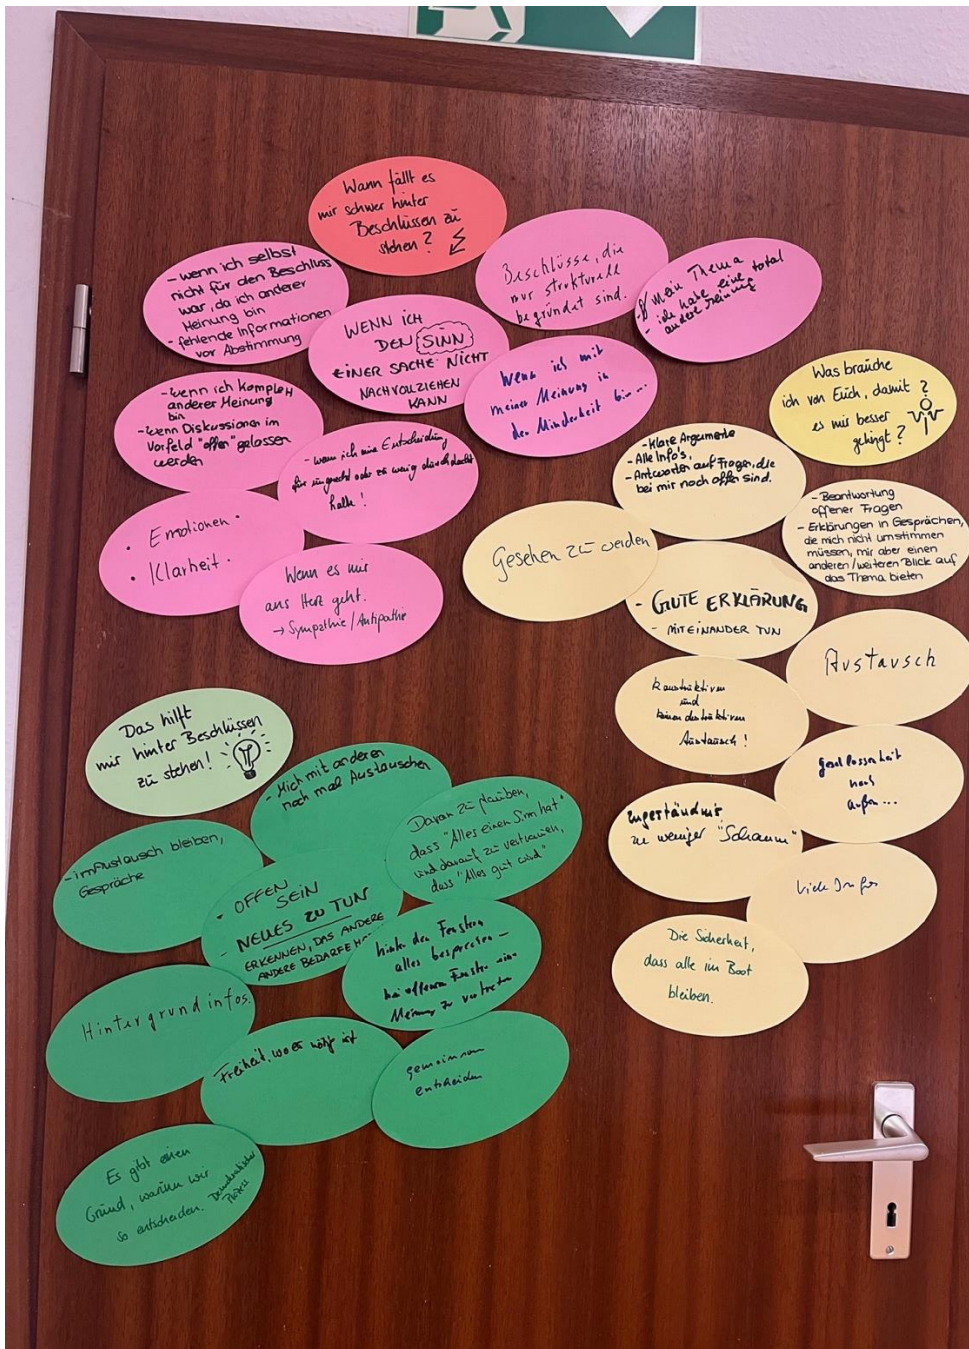 Wann fällt es
mir schwer hinter
Beschlüssen zu
stehen?
- wenn ich selbst
nicht für den Beschluss
war, da ich anderer
Meinung bin
- fehlende Informationen
vor Abstimmung
WENN ICH
DEN SINN
EINER SACHE NICHT
NACHVOLLZIEHEN
KANN
Beschlüsse, die
nur strukturell
begründet sind.
mein Thema
- ich habe eine total
andere Meinung
- wenn ich komplett
anderer Meinung
bin
- wenn Diskussionen im
Vorfeld "offen" gelassen
werden
Wenn ich mit
meiner Meinung in
der Minderheit bin...
- wenn ich eine Entscheidung
für ungerecht oder zu wenig durchdacht
halte!
• Emotionen •
• Klarheit •
Wenn es mir
ans Herz geht.
→ Sympathie/Antipathie
Was bräuchte
ich von Euch, damit
es mir besser
gelingt?
- klare Argumente
- Alle Info's,
- Antworten auf Fragen, die
bei mir noch offen sind.
- Beantwortung
offener Fragen
- Erklärungen in Gesprächen,
die mich nicht umstimmen
müssen, mir aber einen
anderen/weiteren Blick auf
das Thema bieten
Gesehen zu werden
- GUTE ERKLÄRUNG
- MITEINANDER TUN
Austausch
Konstruktiven
und
keinen destruktiven
Austausch!
Geschlossenheit
nach
außen...
Zugeständnis
zu weniger "Schaum"
Viele Infos
Die Sicherheit,
dass alle im Boot
bleiben.
Das hilft
mir hinter Beschlüssen
zu stehen!
- Mich mit anderen
noch mal Austauschen
- im Austausch bleiben,
Gespräche
Daran zu glauben,
dass "Alles einen Sinn hat"
und darauf zu vertrauen,
dass "Alles gut wird"
- OFFEN
SEIN
NEUES ZU TUN
- ERKENNEN, DAS ANDERE
ANDERE BEDARFE
hinter den Fenstern
alles besprechen -
bei offenem Fenster eine
Meinung zu vertreten
Hintergrundinfos.
Freiheit, wo es nötig ist
gemeinsam
entscheiden
Es gibt einen
Grund, warum wir
so entscheiden. Demokratischer
Prozess